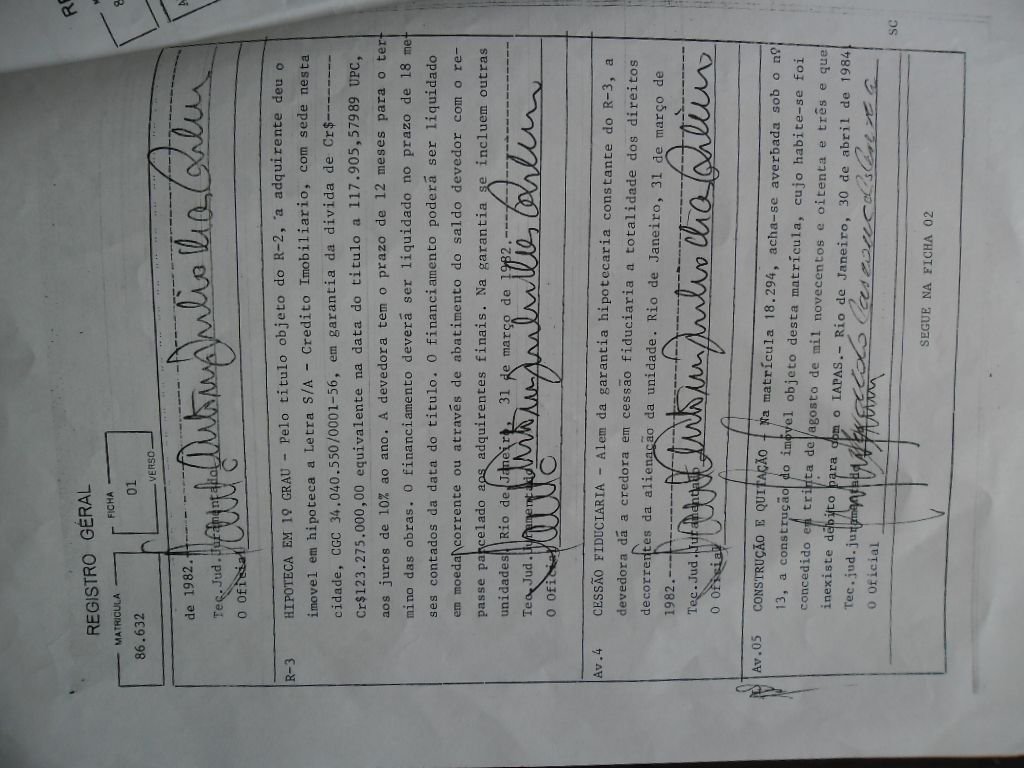 REGISTRO GERAL
MATRÍCULA
86.632
FICHA
01
VERSO
de 1982.
Tec.Jud.Juramentado
O Oficial
R-3
HIPOTECA EM 1º GRAU - Pelo título objeto do R-2, a adquirente deu o
imovel em hipoteca a Letra S/A - Credito Imobiliario, com sede nesta
cidade, CGC 34.040.550/0001-56, em garantia da dívida de Cr$---------
Cr$123.275.000,00 equivalente na data do título a 117.905,57989 UPC,
aos juros de 10% ao ano. A devedora tem o prazo de 12 meses para o ter-
mino das obras. O financiamento deverá ser liquidado no prazo de 18 me-
ses contados da data do titulo. O financiamento poderá ser liquidado
em moeda corrente ou através de abatimento do saldo devedor com o re-
passe parcelado aos adquirentes finais. Na garantia se incluem outras
unidades. Rio de Janeiro, 31 de março de 1982.----------
Tec.Jud.Juramentado
O Oficial
Av.4
CESSÃO FIDUCIARIA - Alem da garantia hipotecaria constante do R-3, a
devedora dá a credora em cessão fiduciaria a totalidade dos direitos
decorrentes da alienação da unidade. Rio de Janeiro, 31 de março de
1982.----------
Tec.Jud.Juramentado
O Oficial
Av.05
CONSTRUÇÃO E QUITAÇÃO - Na matrícula 18.294, acha-se averbada sob o nº
13, a construção do imóvel objeto desta matrícula, cujo habite-se foi
concedido em trinta de agosto de mil novecentos e oitenta e três e que
inexiste debito para com o IAPAS.- Rio de Janeiro, 30 de abril de 1984
Tec.jud.juramentado
O Oficial
SEGUE NA FICHA 02
SC